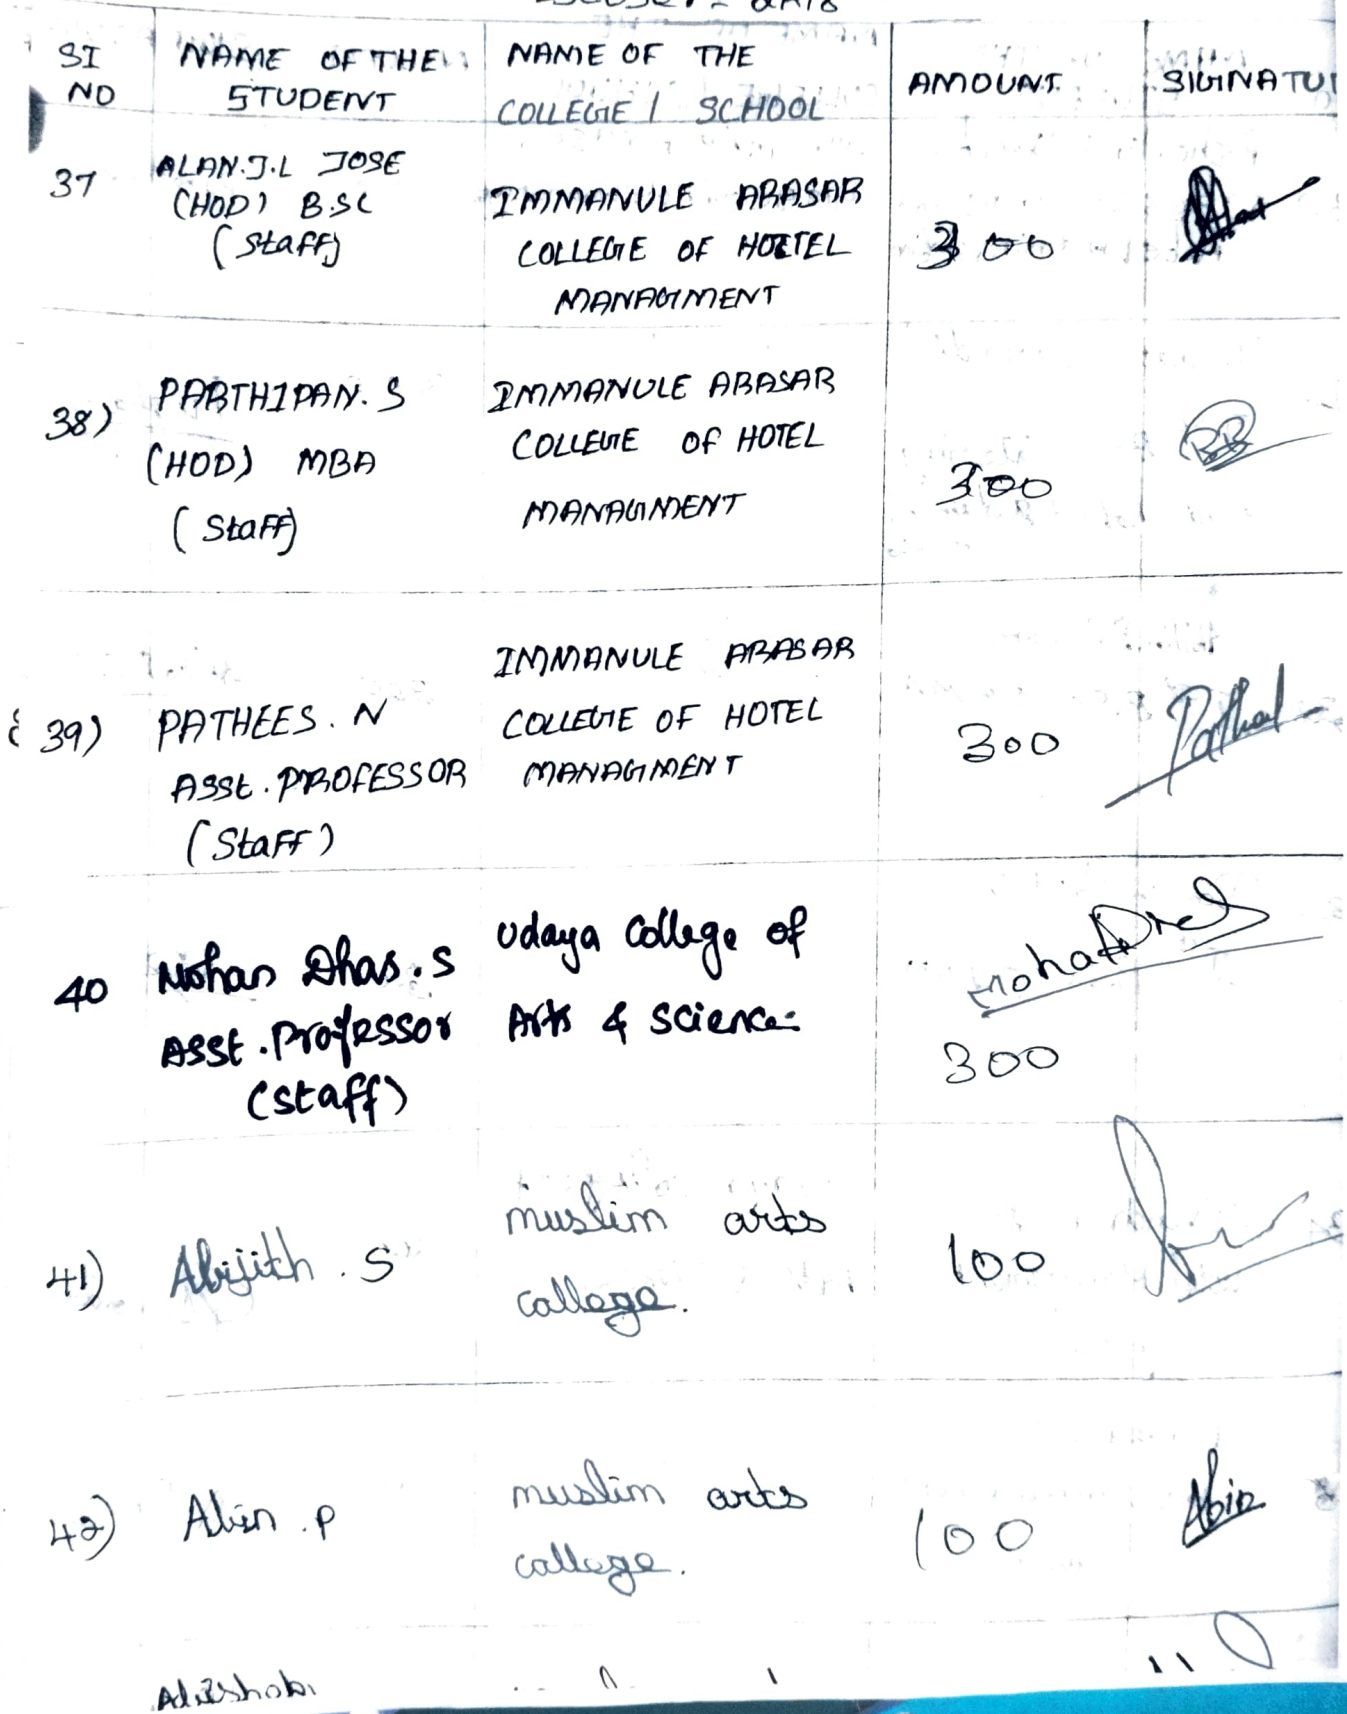 SI NO NAME OF THE STUDENT NAME OF THE COLLEGE / SCHOOL AMOUNT. SIGINATU
37 ALAN.J.L JOSE
(HOD) B.SC
(Staff)
IMMANULE ARASAR
COLLEGE OF HOTEL
MANAGMENT
300
38) PARTHIPAN. S
(HOD) MBA
(Staff)
IMMANULE ARASAR
COLLEGE OF HOTEL
MANAGMENT
300
39) PATHEES. N
ASSt. PROFESSOR
(Staff)
IMMANULE ARASAR
COLLEGE OF HOTEL
MANAGMENT
300
40 Mohan Dhas. S
Asst. Professor
(staff)
Udaya College of
Arts & Science
300
41) Abijith. S
muslim arts
college.
100
42) Abin. P
muslim arts
college.
100
Abin